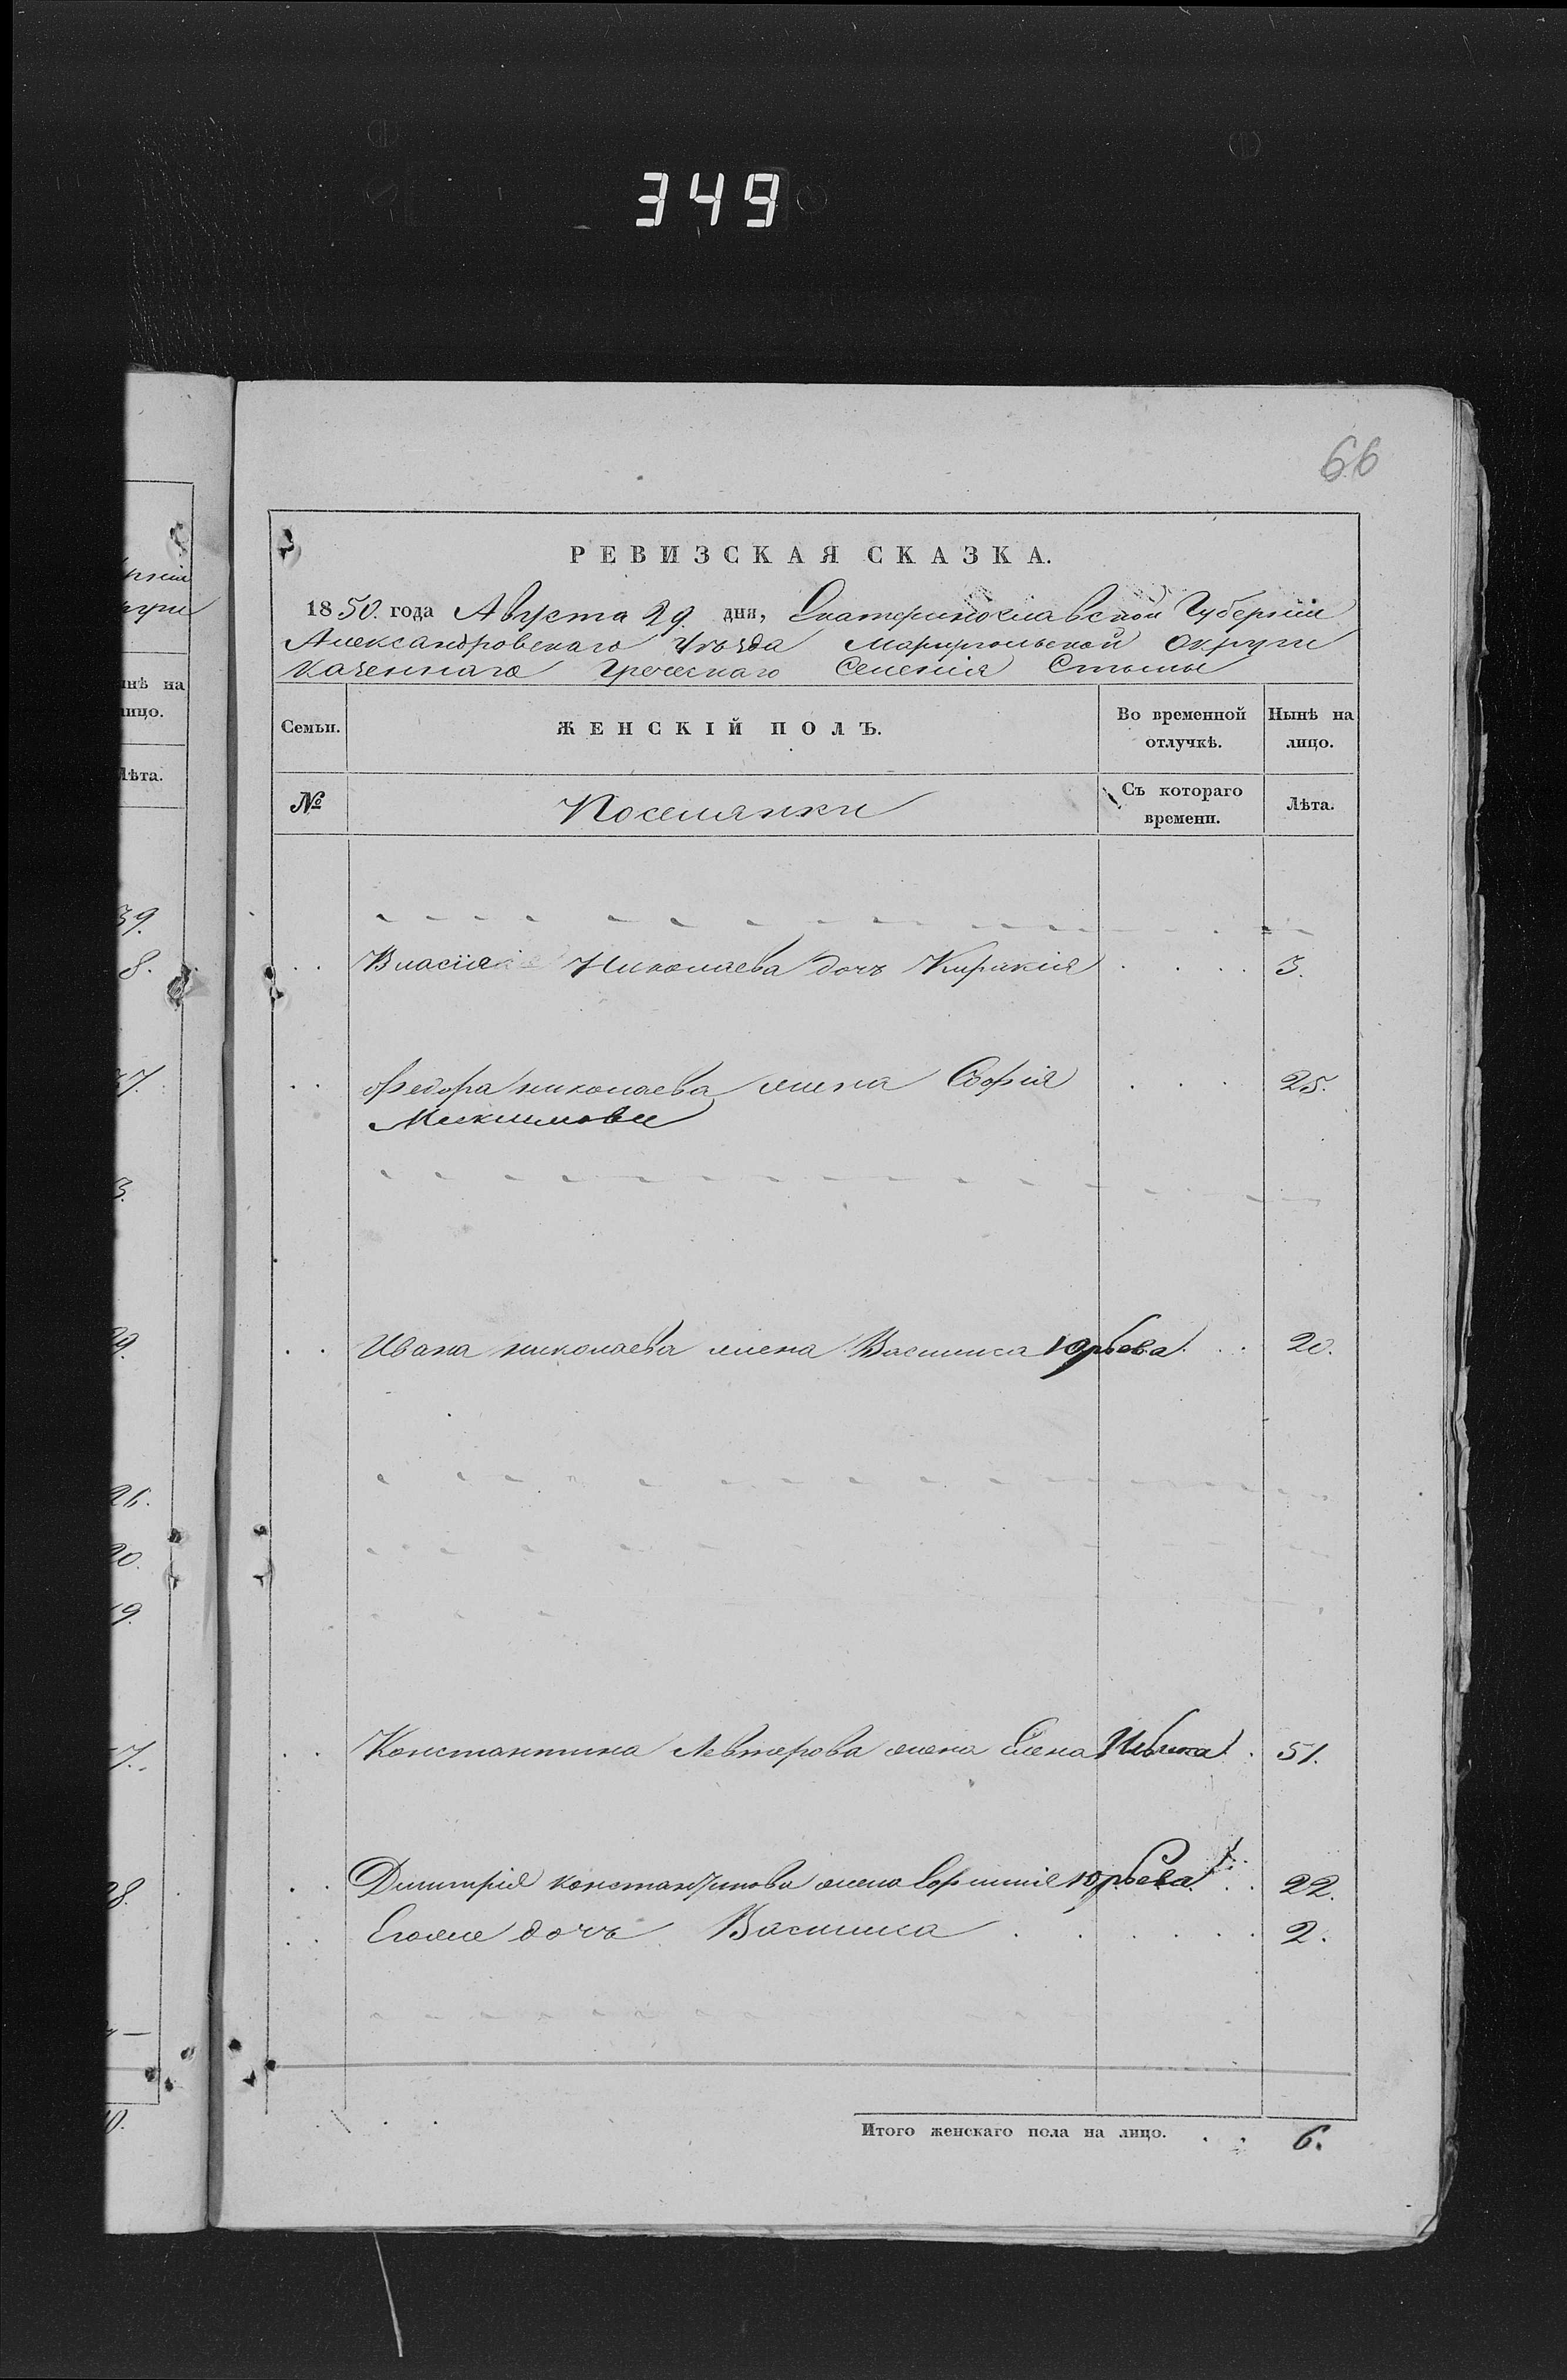 349
66
РЕВИЗСКАЯ СКАЗКА.
1850. года Августа 29. дня, Екатеринославской Губерніи
Александровскаго Уѣзда Маріупольской Округи
Казеннаго Греческаго Селенія Стылы
Семьи. ЖЕНСКІЙ ПОЛЪ. Во временной отлучкѣ. Нынѣ на лицо.
№ Поселянки Съ котораго времени. Лѣта.
Власія Николаева дочь Кирикія 3.
Федора николаева жена Софія 25.
Максимова
Ивана николаева жена Василиса Юрьева 20.
Константина Левтерова жена Елена 51.
Димитрія константинова жена Юрьева 22.
Егоже дочь Василиса 2.
Итого женскаго пола на лицо. 6.
нѣ на
ицо.
Лѣта.
39.
8.
7.
3.
9.
26.
20.
9.
7.
8.
0.